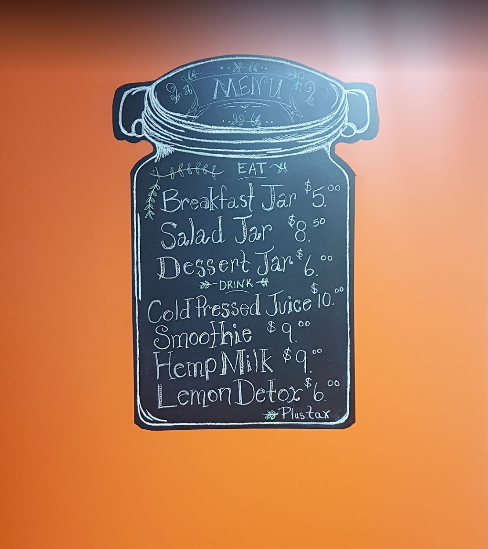 MENU
EAT
Breakfast Jar $5.00
Salad Jar $8.50
Dessert Jar $6.00
DRINK
Cold Pressed Juice $10.00
Smoothie $9.00
Hemp Milk $9.00
Lemon Detox $6.00
Plus tax